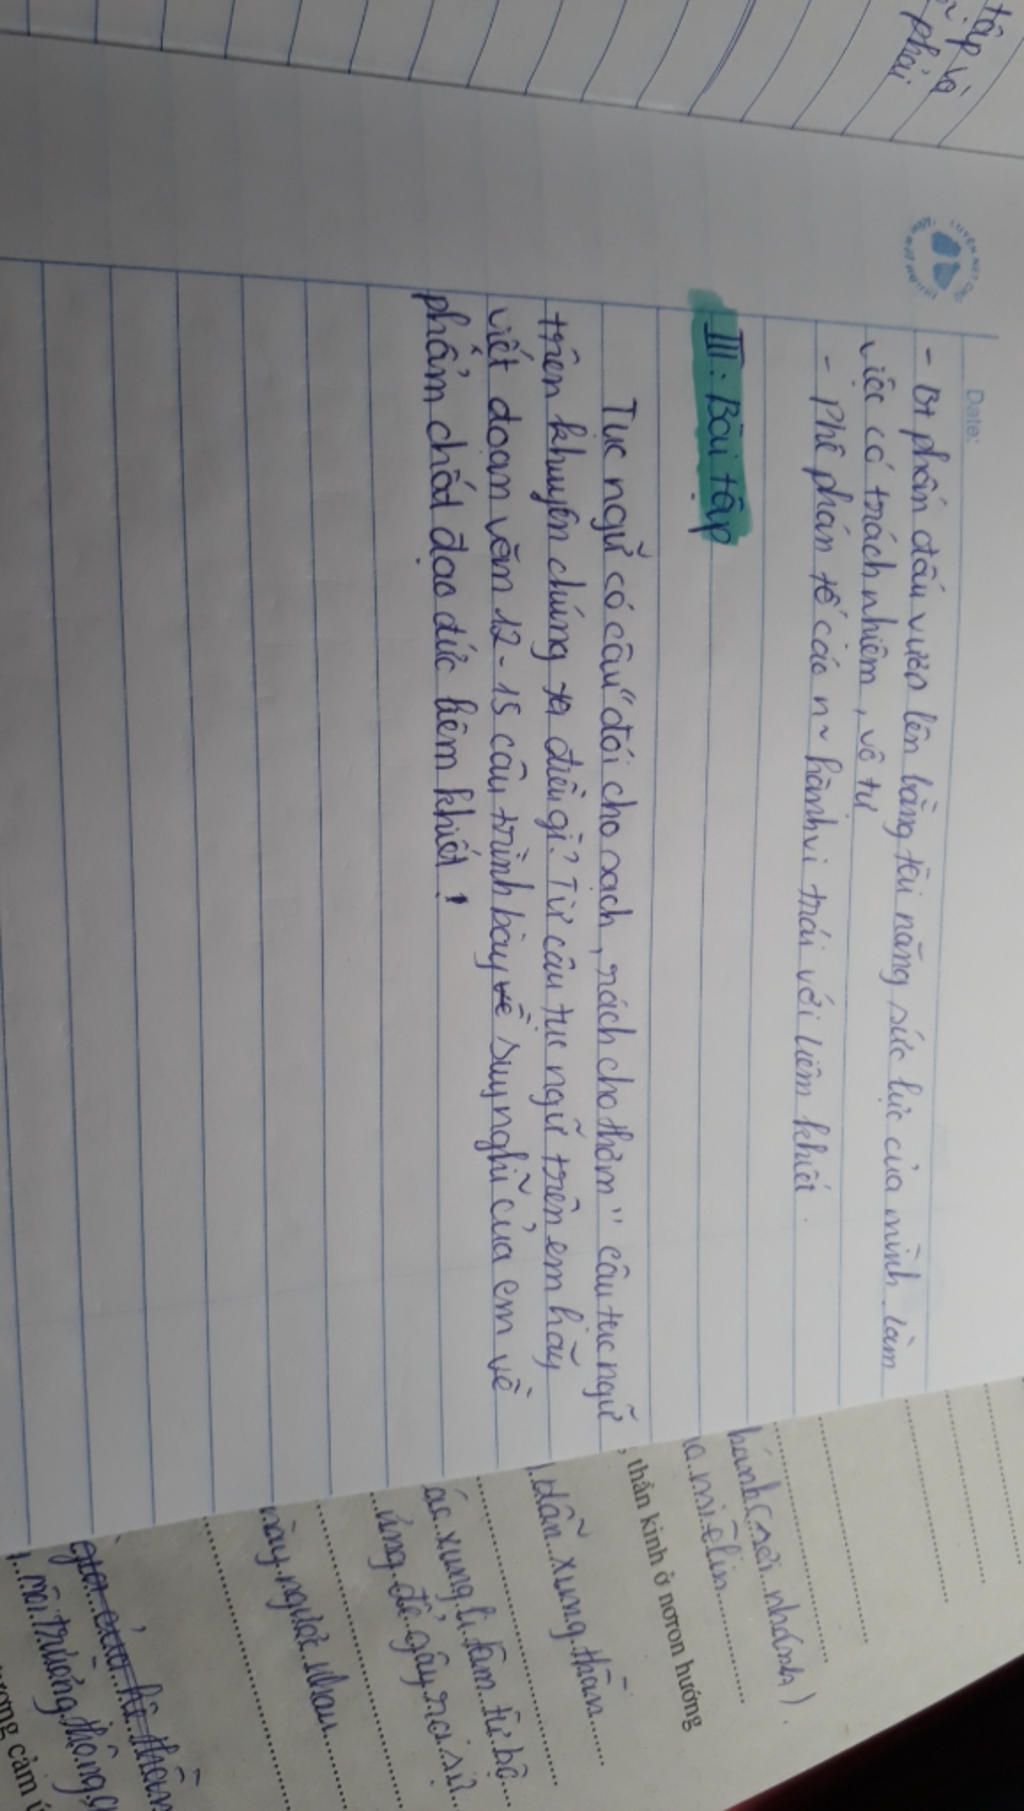 tập và
phải
Date:
- Bt phấn đấu vươn lên bằng tài năng sức lực của mình làm
việc có trách nhiệm, vô tư
- Phê phán tố cáo n~ hành vi trái với liêm khiết.
III. Bài tập
Tục ngữ có câu "đói cho sạch, rách cho thơm" câu tục ngữ
trên khuyên chúng ta điều gì? Từ câu tục ngữ trên em hãy
viết đoạn văn 12-15 câu trình bày về suy nghĩ của em về
phẩm chất đạo đức liêm khiết!
nhánh).
mielin
thần kinh ở nơron hướng
dẫn xung thần
xung li tâm từ bộ
ứng để gây ra sự
này ngược nhau
môi trường thông